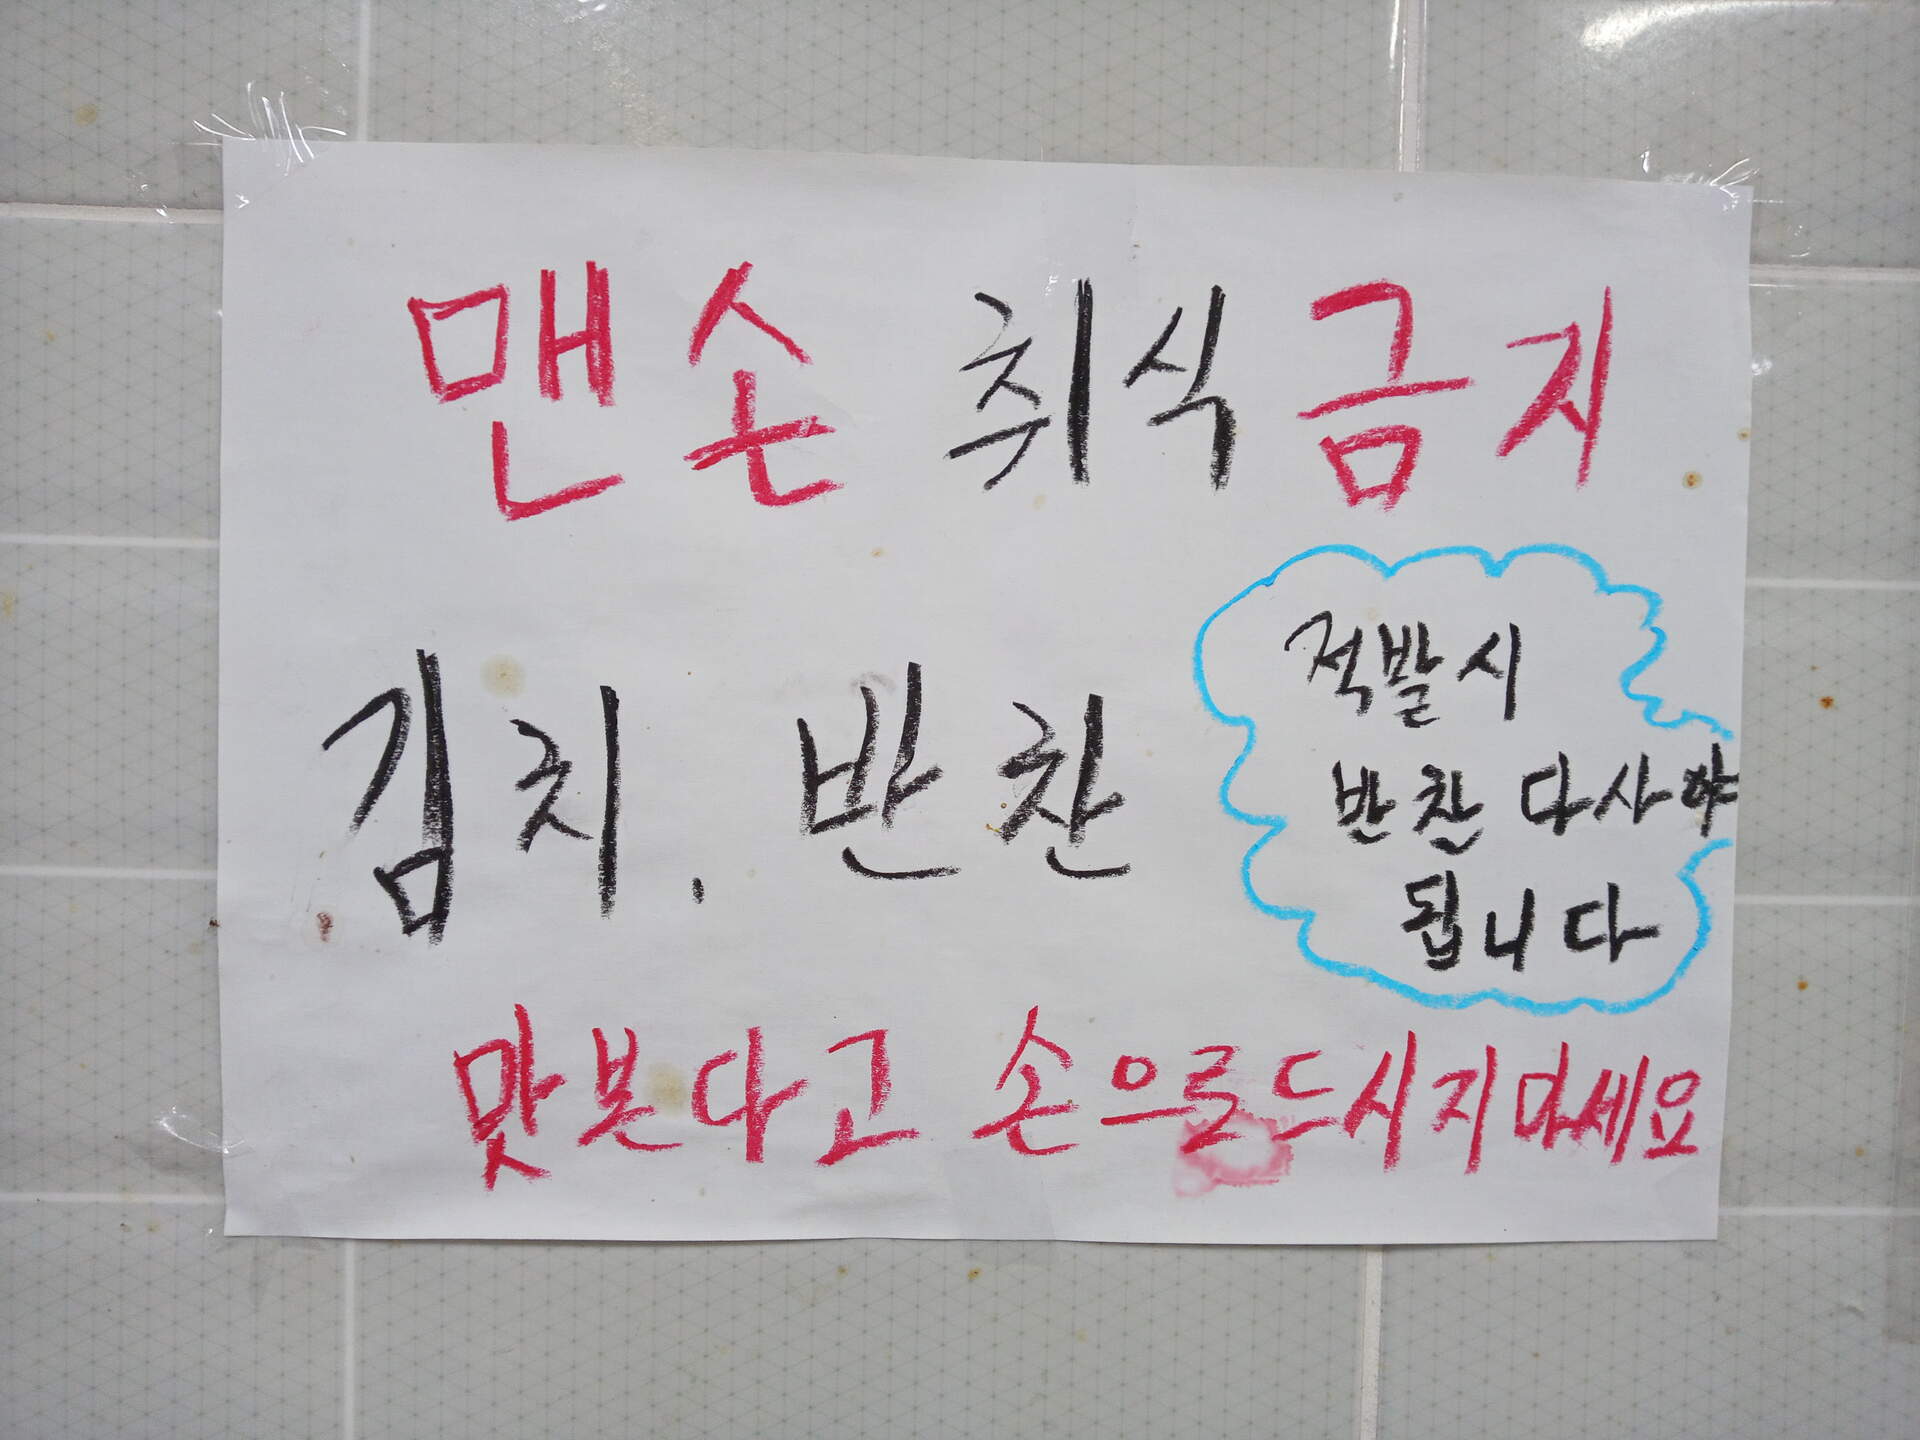 맨손 취식 금지
김치, 반찬
적발시
반찬 다사야
됩니다
맛본다고 손으로드시지마세요